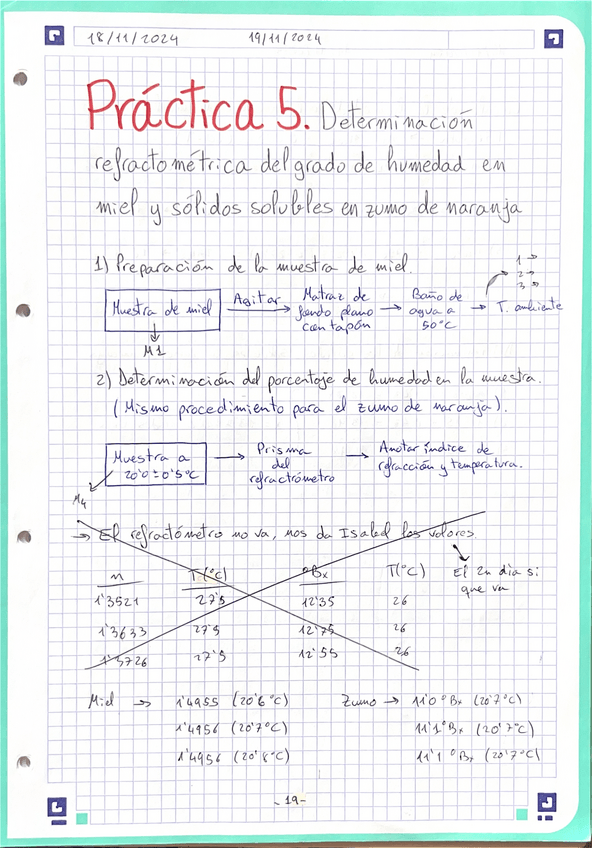 18/11/2024 19/11/2024
Práctica 5. Determinación
refractométrica del grado de humedad en
miel y sólidos solubles en zumo de naranja
1) Preparación de la muestra de miel.
Muestra de miel → Agitar → Matraz de fondo plano con tapón → Baño de agua a 50°C → T. ambiente
1 →
2 →
3 →
M1
2) Determinación del porcentaje de humedad en la muestra.
(Mismo procedimiento para el zumo de naranja).
Muestra a 20'0 ± 0'5°C → Prisma del refractrómetro → Anotar índice de refracción y temperatura.
→ El refractómetro no va, nos da Isabel los valores.
n T(°C) °Bx T(°C) El 2n dia si
1'3521 27'5 12'35 26 que va
1'3633 27'5 12'75 26
1'3726 27'5 12'55 26
Miel → 1'4955 (20'6°C) Zumo → 11'0 °Bx (20'7°C)
1'4956 (20'7°C) 11'1 °Bx (20'7°C)
1'4956 (20'8°C) 11'1 °Bx (20'7°C)
-19-